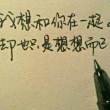 我想和你在一起。
却也只是想想而已